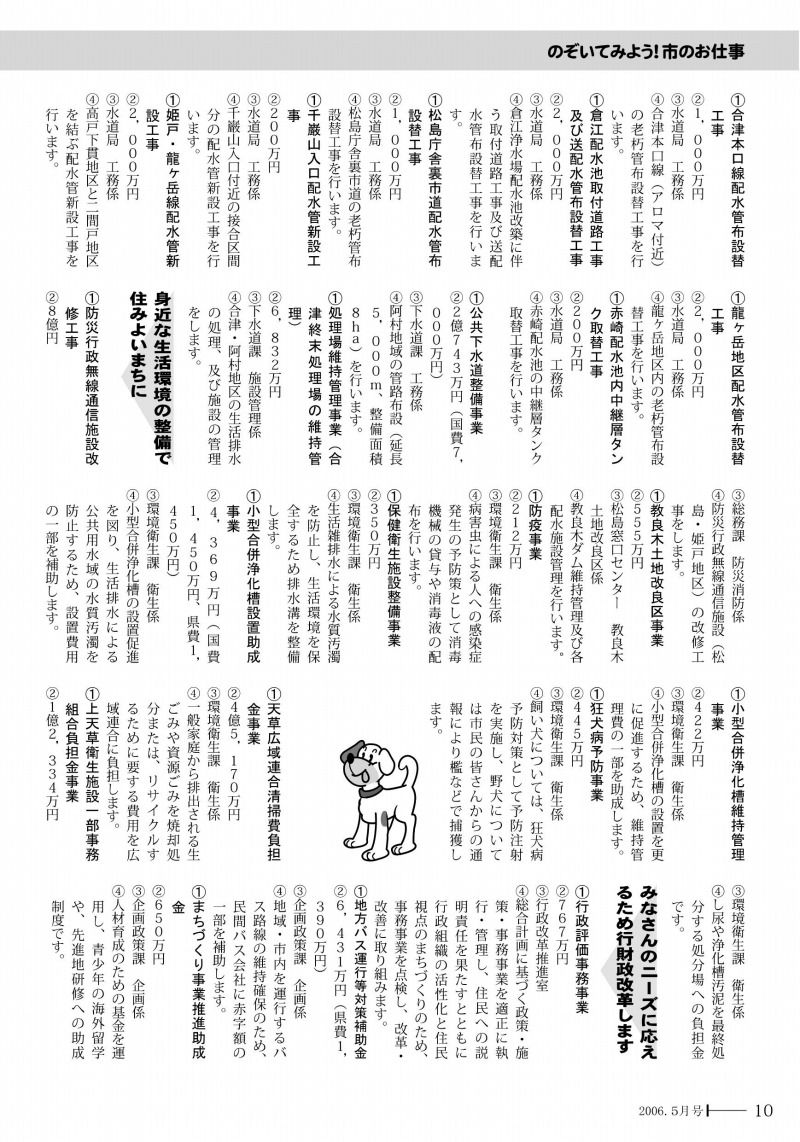 のぞいてみよう！市のお仕事
①合津本口線配水管布設替
工事
②１，０００万円
③水道局　工務係
④合津本口線（アロマ付近）
の老朽管布設替工事を行
います。
①倉江配水池取付道路工事
及び送配水管布設替工事
②２，０００万円
③水道局　工務係
④倉江浄水場配水池改築に伴
う取付道路工事及び送配
水管布設替工事を行いま
す。
①松島庁舎裏市道配水管布
設替工事
②１，０００万円
③水道局　工務係
④松島庁舎裏市道の老朽管布
設替工事を行います。
①千巌山入口配水管新設工
事
②２００万円
③水道局　工務係
④千巌山入口付近の接合区間
分の配水管新設工事を行
います。
①姫戸・龍ヶ岳線配水管新
設工事
②２，０００万円
③水道局　工務係
④高戸下貫地区と二間戸地区
を結ぶ配水管新設工事を
行います。
①龍ヶ岳地区配水管布設替
工事
②２，０００万円
③水道局　工務係
④龍ヶ岳地区内の老朽管布設
替工事を行います。
①赤崎配水池内中継層タン
ク取替工事
②２００万円
③水道局　工務係
④赤崎配水池の中継層タンク
取替工事を行います。
①公共下水道整備事業
②２億７４３万円（国費７，
０００万円）
③下水道課　工務係
④阿村地域の管路布設（延長
５，０００ｍ、整備面積
８ha）を行います。
①処理場維持管理事業（合
津終末処理場の維持管
理）
②６，８３２万円
③下水道課　施設管理係
④合津・阿村地区の生活排水
の処理、及び施設の管理
をします。
身近な生活環境の整備で
住みよいまちに
①防災行政無線通信施設改
修工事
②８億円
③総務課　防災消防係
④防災行政無線通信施設（松
島・姫戸地区）の改修工
事をします。
①教良木土地改良区事業
②５５５万円
③松島窓口センター　教良木
土地改良区係
④教良木ダム維持管理及び各
配水施設管理を行います。
①防疫事業
②２１２万円
③環境衛生課　衛生係
④病害虫による人への感染症
発生の予防策として消毒
機械の貸与や消毒液の配
布を行います。
①保健衛生施設整備事業
②３５０万円
③環境衛生課　衛生係
④生活雑排水による水質汚濁
を防止し、生活環境を保
全するため排水溝を整備
します。
①小型合併浄化槽設置助成
事業
②４，３６９万円（国費
１，４５０万円、県費１，
４５０万円）
③環境衛生課　衛生係
④小型合併浄化槽の設置促進
を図り、生活排水による
公共用水域の水質汚濁を
防止するため、設置費用
の一部を補助します。
①小型合併浄化槽維持管理
事業
②４２２万円
③環境衛生課　衛生係
④小型合併浄化槽の設置を更
に促進するため、維持管
理費の一部を助成します。
①狂犬病予防事業
②４４５万円
③環境衛生課　衛生係
④飼い犬については、狂犬病
予防対策として予防注射
を実施し、野犬について
は市民の皆さんからの通
報により檻などで捕獲し
ます。
①天草広域連合清掃費負担
金事業
②４億５，１７０万円
③環境衛生課　衛生係
④一般家庭から排出される生
ごみや資源ごみを焼却処
分または、リサイクルす
るために要する費用を広
域連合に負担します。
①上天草衛生施設一部事務
組合負担金事業
②１億２，３３４万円
③環境衛生課　衛生係
④し尿や浄化槽汚泥を最終処
分する処分場への負担金
です。
みなさんのニーズに応え
るため行財政改革します
①行政評価事務事業
②７６７万円
③行政改革推進室
④総合計画に基づく政策・施
策・事務事業を適正に執
行・管理し、住民への説
明責任を果たすとともに
行政組織の活性化と住民
視点のまちづくりのため、
事務事業を点検し、改革・
改善に取り組みます。
①地方バス運行等対策補助金
②６，４３１万円（県費１，
３９０万円）
③企画政策課　企画係
④地域・市内を運行するバ
ス路線の維持確保のため、
民間バス会社に赤字額の
一部を補助します。
①まちづくり事業推進助成
金
②６５０万円
③企画政策課　企画係
④人材育成のための基金を運
用し、青少年の海外留学
や、先進地研修への助成
制度です。
2006.5月号 10